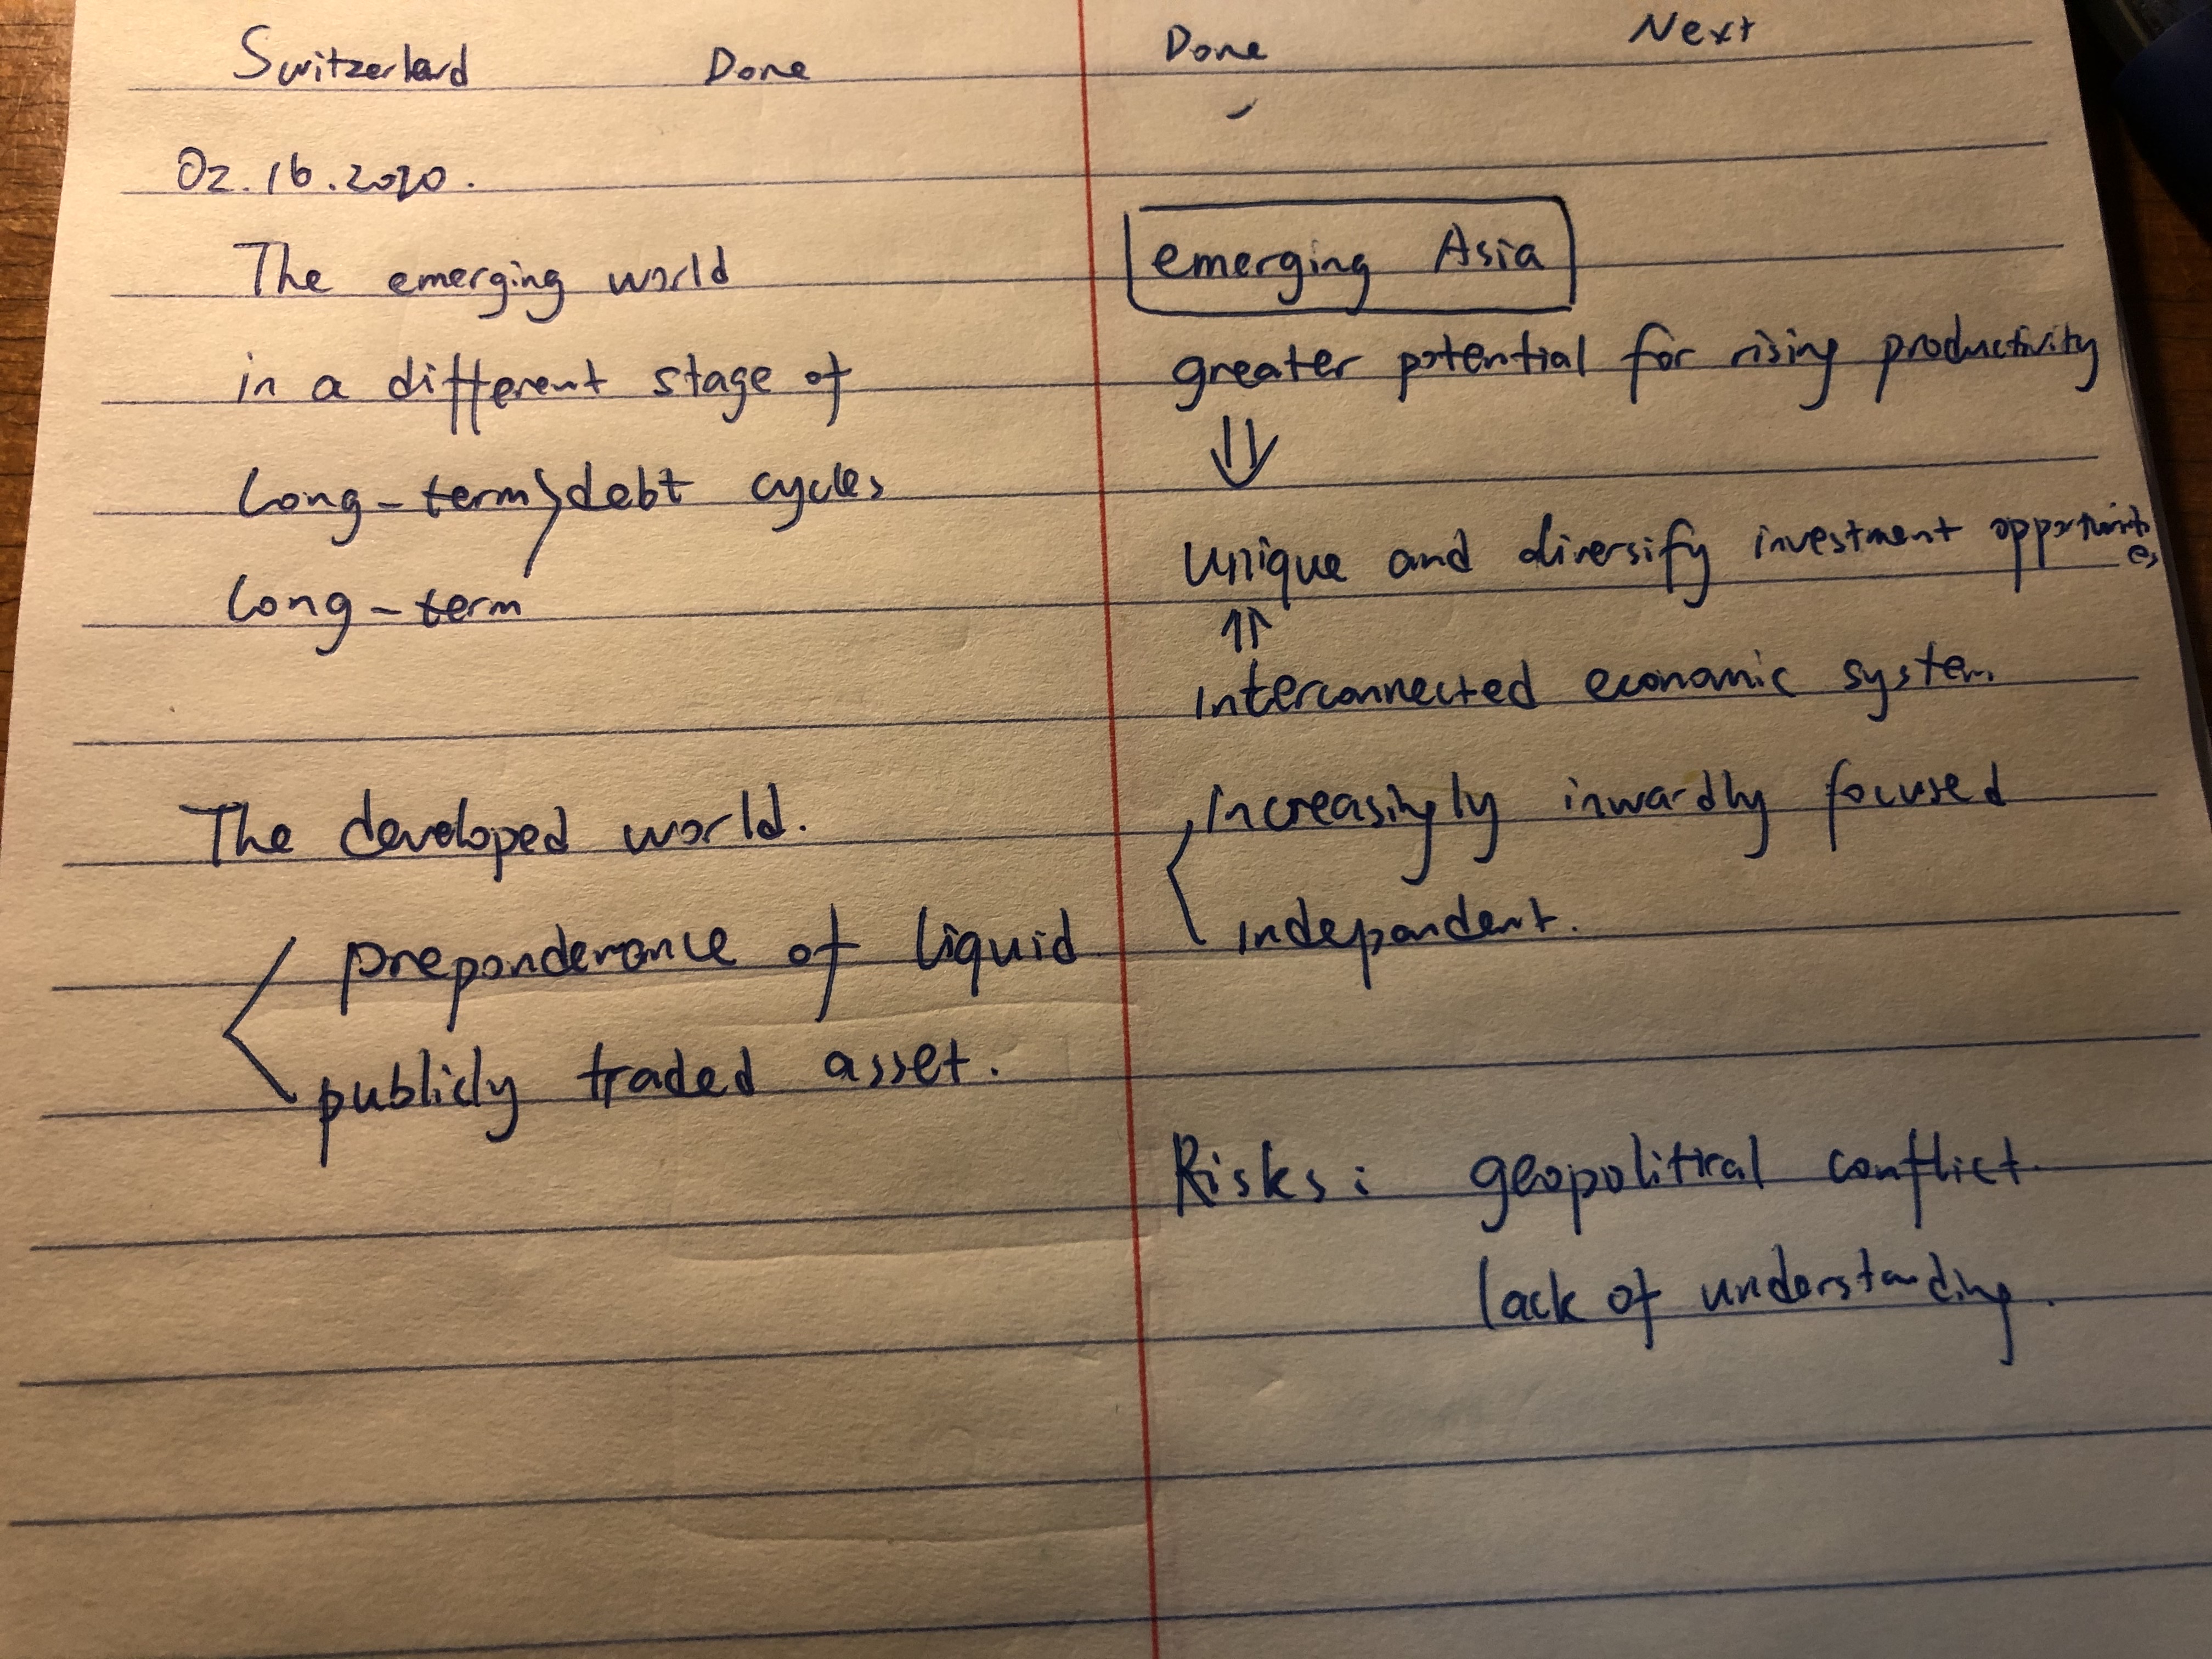 Switzerland Done
02.16.2020.
The emerging world
in a different stage of
Long-term debt cycles
Long-term
The developed world.
preponderance of liquid
publicly traded asset.
Done Next
emerging Asia
greater potential for rising productivity
⇓
Unique and diversify investment opportunities
⇑
Interconnected economic system
Increasingly inwardly focused
independent.
Risks: geopolitical conflict.
lack of understanding.